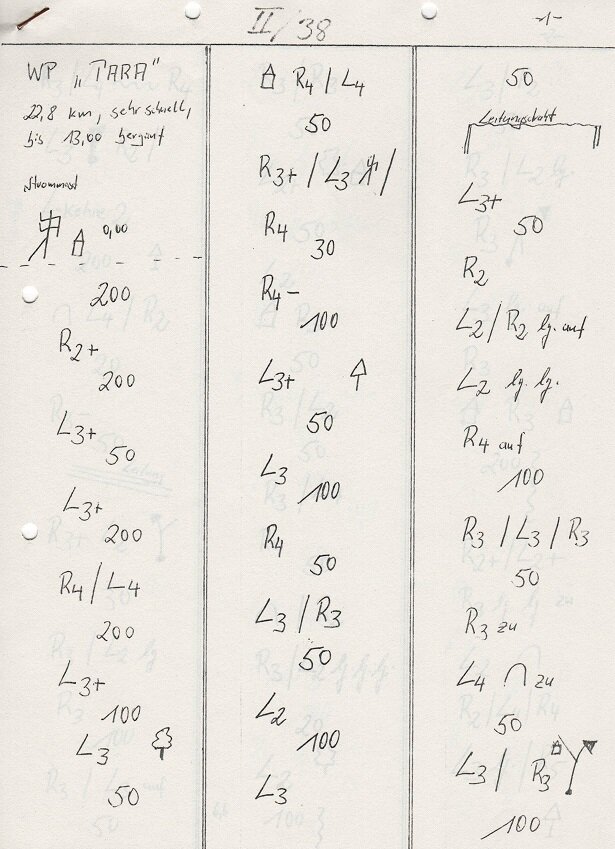 II/38
-1-
WP „TARA"
22,8 km, sehr schnell,
bis 13,00 bergauf
Strommast
0,00
200
R2+
200
L3+
50
L3+
200
R4/L4
200
L3+
100
L3
50
R4/L4
50
R3+/L3/
R4
30
R4-
100
L3+
50
L3
100
R4
50
L3/R3
50
L2
100
L3
50
L3+
50
R2
L2/R2 lg. auf
L2 lg. lg.
R4 auf
100
R3/L3/R3
50
R3 zu
L4 zu
50
L3/R3
100